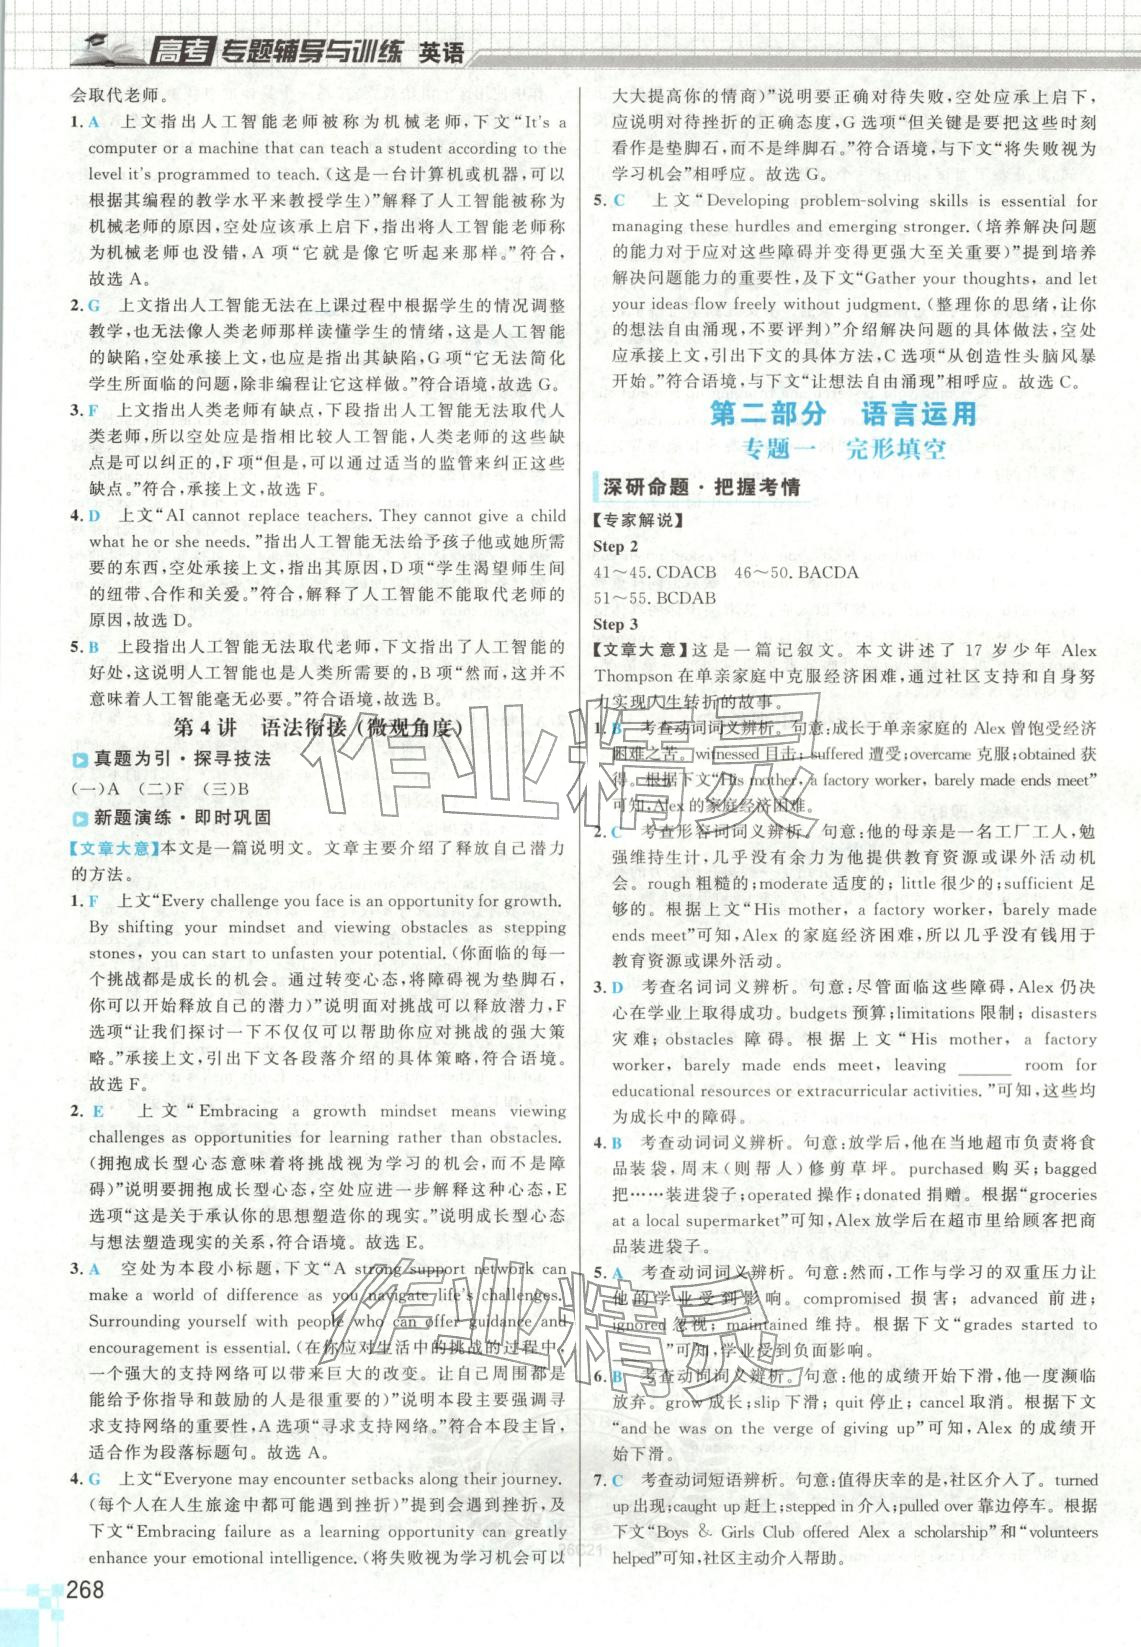 高考 专题辅导与训练 英语
会取代老师。
1. A 上文指出人工智能老师被称为机械老师,下文“It's a
computer or a machine that can teach a student according to the
level it's programmed to teach. (这是一台计算机或机器,可以
根据其编程的教学水平来教授学生)”解释了人工智能被称为
机械老师的原因,空处应该承上启下,指出将人工智能老师称
为机械老师也没错,A 项“它就是像它听起来那样。”符合,
故选 A。
2. G 上文指出人工智能无法在上课过程中根据学生的情况调整
教学,也无法像人类老师那样读懂学生的情绪,这是人工智能
的缺陷,空处承接上文,也应是指出其缺陷,G 项“它无法简化
学生所面临的问题,除非编程让它这样做。”符合语境,故选 G。
3. F 上文指出人类老师有缺点,下段指出人工智能无法取代人
类老师,所以空处应是指相比较人工智能,人类老师的这些缺点
是可以纠正的,F 项“但是,可以通过适当的监管来纠正这些
缺点。”符合,承接上文,故选 F。
4. D 上文“AI cannot replace teachers. They cannot give a child
what he or she needs. ”指出人工智能无法给予孩子他或她所需
要的东西,空处承接上文,指出其原因,D 项“学生渴望师生间
的纽带、合作和关爱。”符合,解释了人工智能不能取代老师的
原因,故选 D。
5. B 上段指出人工智能无法取代老师,下文指出了人工智能的
好处,这说明人工智能也是人类所需要的,B 项“然而,这并不
意味着人工智能毫无必要。”符合语境,故选 B。
第 4 讲 语法衔接(微观角度)
真题为引·探寻技法
(一)A (二)F (三)B
新题演练·即时巩固
【文章大意】本文是一篇说明文。文章主要介绍了释放自己潜力
的方法。
1. F 上文“Every challenge you face is an opportunity for growth.
By shifting your mindset and viewing obstacles as stepping
stones, you can start to unfasten your potential. (你面临的每一
个挑战都是成长的机会。通过转变心态,将障碍视为垫脚石,
你可以开始释放自己的潜力)”说明面对挑战可以释放潜力,F
选项“让我们探讨一下不仅仅可以帮助你应对挑战的强大策
略。”承接上文,引出下文各段落介绍的具体策略,符合语境。
故选 F。
2. E 上文“Embracing a growth mindset means viewing
challenges as opportunities for learning rather than obstacles.
(拥抱成长型心态意味着将挑战视为学习的机会,而不是障
碍)”说明要拥抱成长型心态,空处应进一步解释这种心态,E
选项“这是关于承认你的思想塑造你的现实。”说明成长型心态
与想法塑造现实的关系,符合语境。故选 E。
3. A 空处为本段小标题,下文“A strong support network can
make a world of difference as you navigate life's challenges.
Surrounding yourself with people who can offer guidance and
encouragement is essential. (在你应对生活中的挑战的过程中,
一个强大的支持网络可以带来巨大的改变。让自己周围都是
能给予你指导和鼓励的人是很重要的)”说明本段主要强调寻
求支持网络的重要性,A 选项“寻求支持网络。”符合本段主旨,
适合作为段落标题句。故选 A。
4. G 上文“Everyone may encounter setbacks along their journey.
(每个人在人生旅途中都可能遇到挫折)”提到会遇到挫折,及
下文“Embracing failure as a learning opportunity can greatly
enhance your emotional intelligence. (将失败视为学习机会可以
268
大大提高你的情商)”说明要正确对待失败,空处应承上启下,
应说明对待挫折的正确态度,G 选项“但关键是要把这些时刻
看作是垫脚石,而不是绊脚石。”符合语境,与下文“将失败视为
学习机会”相呼应。故选 G。
5. C 上文“Developing problem-solving skills is essential for
managing these hurdles and emerging stronger. (培养解决问题
的能力对于应对这些障碍并变得更强大至关重要)”提到培养
解决问题能力的重要性,及下文“Gather your thoughts, and let
your ideas flow freely without judgment. (整理你的思绪,让你
的想法自由涌现,不要评判)”介绍解决问题的具体做法,空处
应承接上文,引出下文的具体方法,C 选项“从创造性头脑风暴
开始。”符合语境,与下文“让想法自由涌现”相呼应。故选 C。
第二部分 语言运用
专题一 完形填空
深研命题·把握考情
【专家解说】
Step 2
41～45. CDACB 46～50. BACDA
51～55. BCDAB
Step 3
【文章大意】这是一篇记叙文。本文讲述了 17 岁少年 Alex
Thompson 在单亲家庭中克服经济困难,通过社区支持和自身努
力实现人生转折的故事。
1. B 考查动词词义辨析。句意:成长于单亲家庭的 Alex 曾饱受经济
困难之苦。witnessed 目击;suffered 遭受;overcame 克服;obtained 获
得。根据下文“His mother, a factory worker, barely made ends meet”
可知,Alex 的家庭经济困难。
2. C 考查形容词词义辨析。句意:他的母亲是一名工厂工人,勉
强维持生计,几乎没有余力为他提供教育资源或课外活动机
会。rough 粗糙的;moderate 适度的; little 很少的;sufficient 足
够的。根据上文“His mother, a factory worker, barely made
ends meet”可知,Alex 的家庭经济困难,所以几乎没有钱用于
教育资源或课外活动。
3. D 考查名词词义辨析。句意:尽管面临这些障碍,Alex 仍决
心在学业上取得成功。budgets 预算;limitations 限制;disasters
灾难;obstacles 障碍。根据上文“His mother, a factory
worker, barely made ends meet, leaving ______ room for
educational resources or extracurricular activities. ”可知,这些均
为成长中的障碍。
4. B 考查动词词义辨析。句意:放学后,他在当地超市负责将食
品装袋,周末(则帮人)修剪草坪。purchased 购买;bagged
把……装进袋子;operated 操作;donated 捐赠。根据“groceries
at a local supermarket”可知,Alex 放学后在超市里给顾客把商
品装进袋子。
5. A 考查动词词义辨析。句意:然而,工作与学习的双重压力让
他的学业受到影响。compromised 损害;advanced 前进;
ignored 忽视;maintained 维持。根据下文“grades started to
______”可知,学业受到负面影响。
6. B 考查动词词义辨析。句意:他的成绩开始下滑,他一度濒临
放弃。grow 成长;slip 下滑;quit 停止;cancel 取消。根据下文
“and he was on the verge of giving up”可知,Alex 的成绩开
始下滑。
7. C 考查动词短语辨析。句意:值得庆幸的是,社区介入了。turned
up 出现;caught up 赶上;stepped in 介入;pulled over 靠边停车。根据
下文“Boys & Girls Club offered Alex a scholarship”和“volunteers
helped”可知,社区主动介入帮助。
作业精灵
作业精灵
26C21